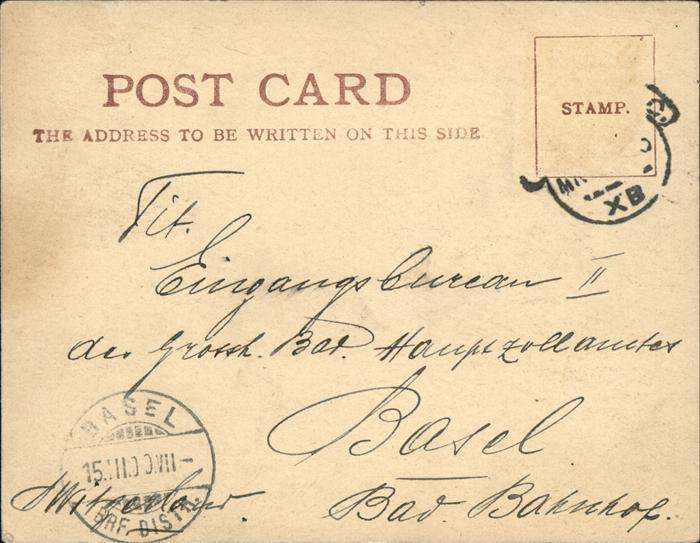 POST CARD
THE ADDRESS TO BE WRITTEN ON THIS SIDE
STAMP.
XB
Tit.
Eingangsbureau II
des Grossh. Bad. Hauptzollamtes
Basel
BASEL
BRF. DIST.
Switzerland. Bad. Bahnhof.